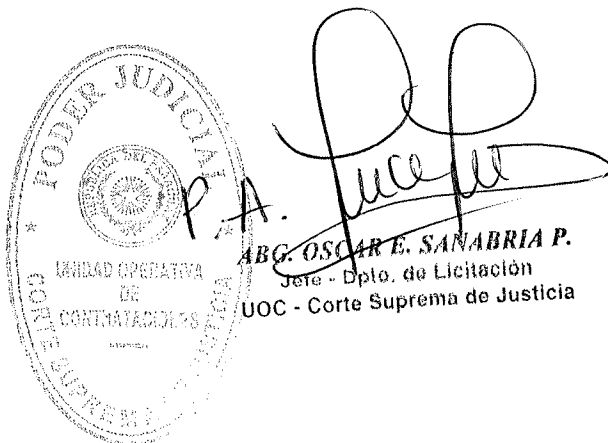 PODER JUDICIAL
REPÚBLICA DEL
UNIDAD OPERATIVA
DE
CONTRATACIONES
CORTE SUPREMA DE JUSTICIA
P.A.
ABG. OSCAR E. SANABRIA P.
Jefe - Dpto. de Licitación
UOC - Corte Suprema de Justicia